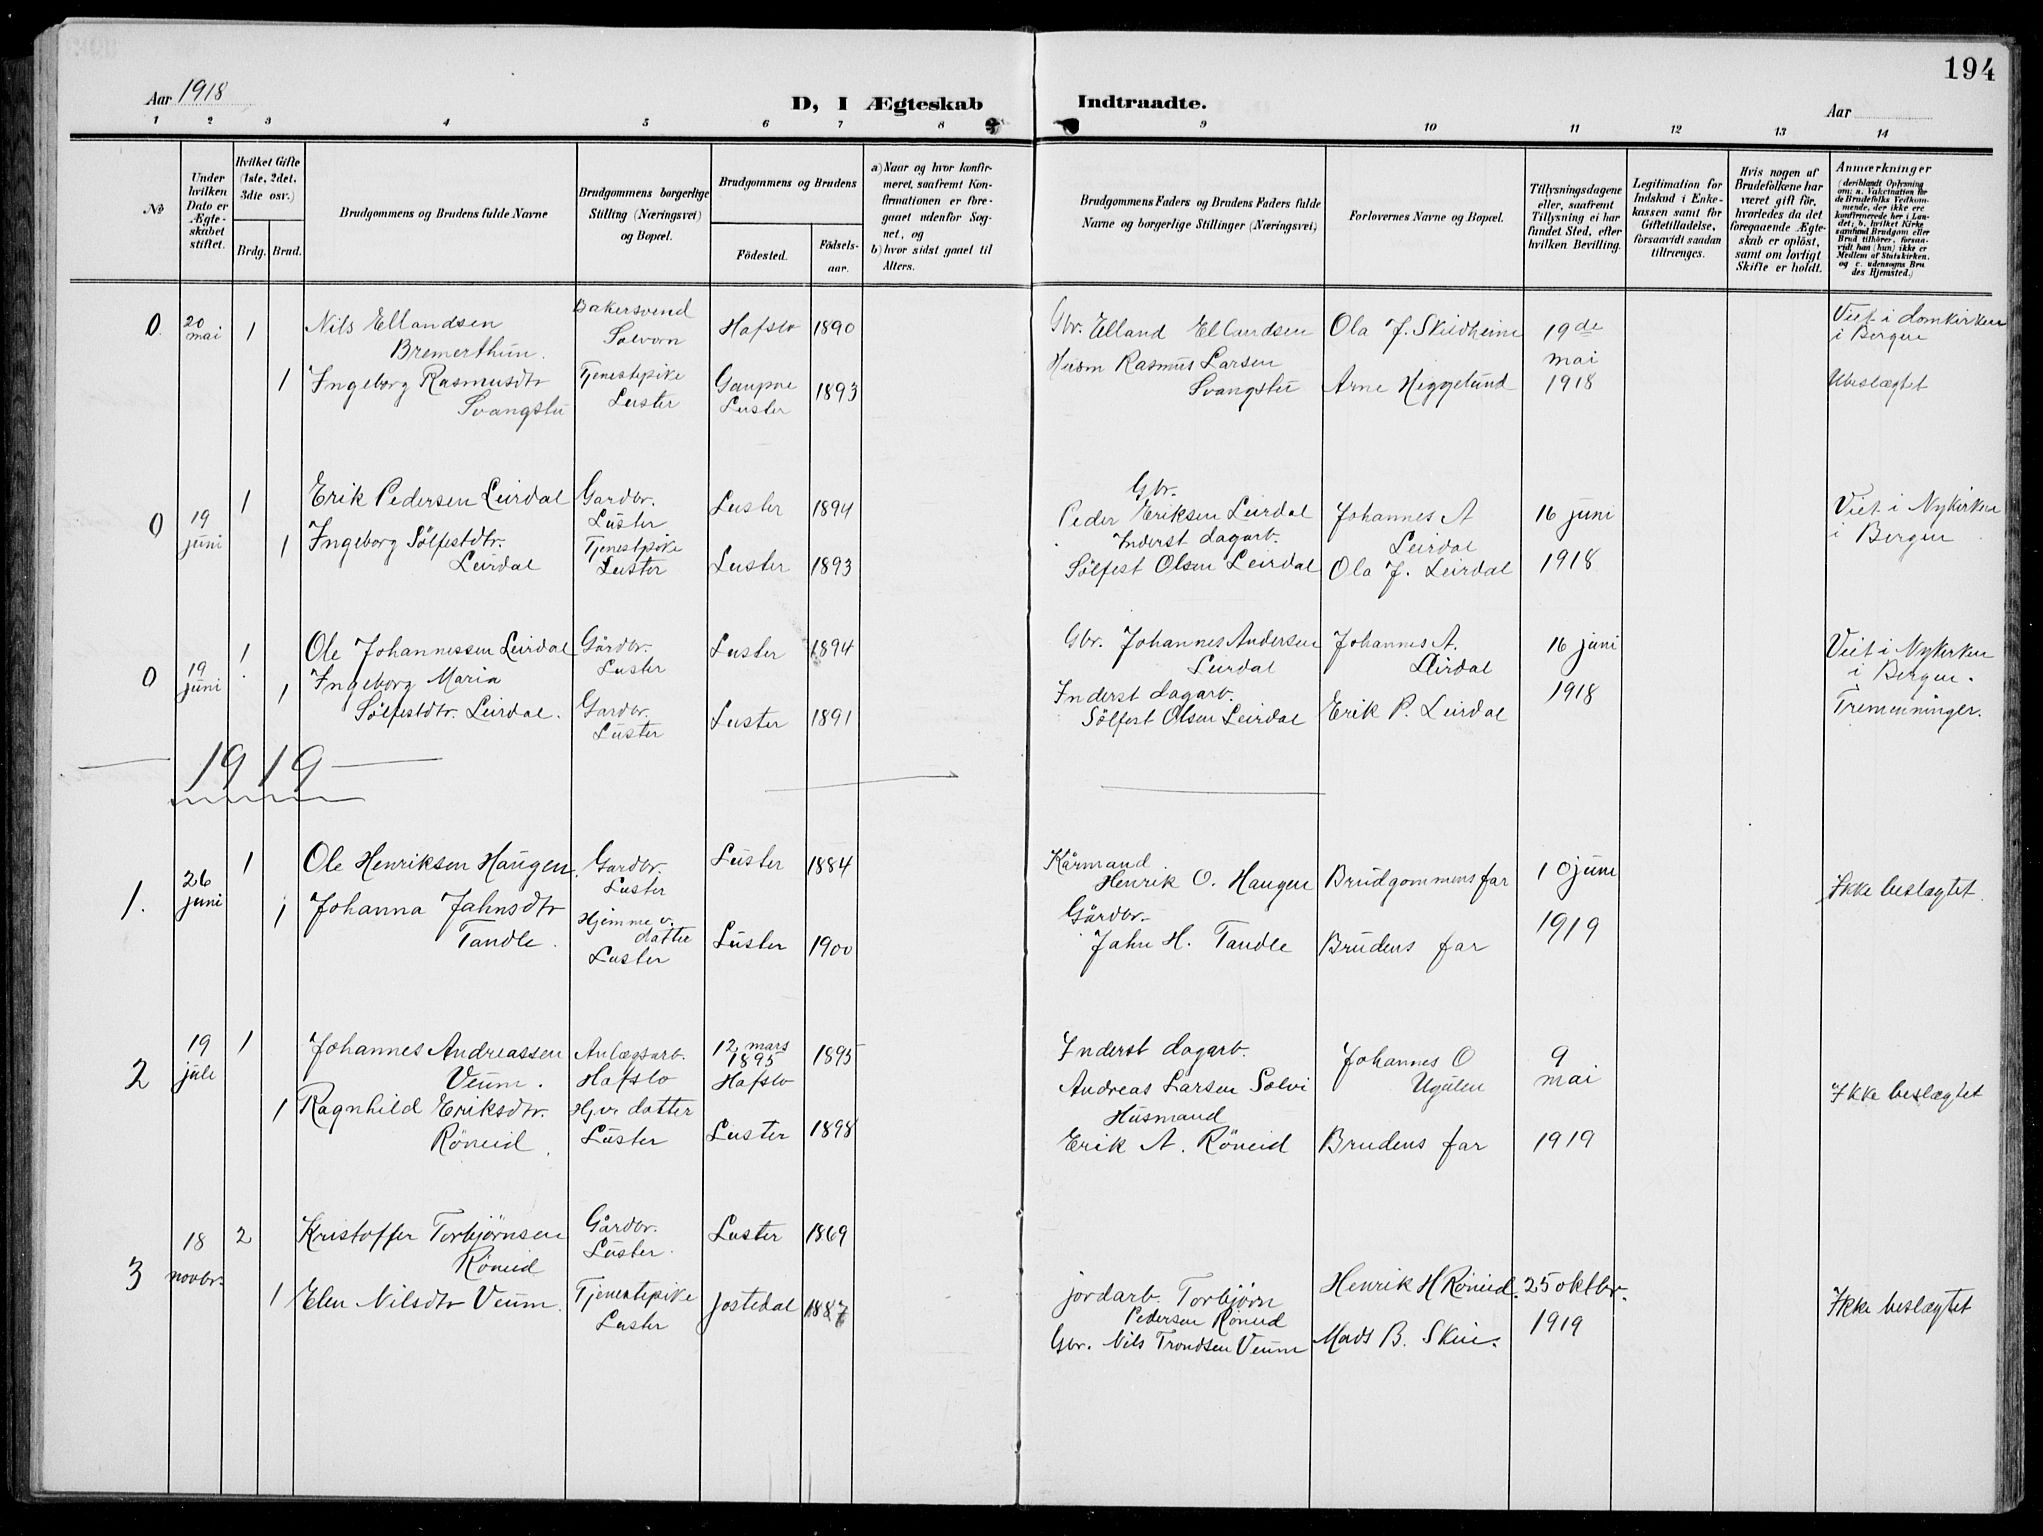 194
Aar 1918
D, I Ægteskab Indtraadte.
Aar
1 2 3 4 5 6 7 8 9 10 11 12 13 14
No
Under hvilken Dato er Ægteskabet stiftet.
Hvilket Gifte (1ste, 2det, 3die osv.)
Brdg. Brud.
Brudgommens og Brudens fulde Navne
Brudgommens borgerlige Stilling (Næringsvei) og Bopæl.
Brudgommens og Brudens
Födested.
Födselsaar.
a) Naar og hvor konfirmeret, saafremt Konfirmationen er foregaaet udenfor Sognet, og
b) hvor sidst gaaet til Alters.
Brudgommens Faders og Brudens Faders fulde Navne og borgerlige Stillinger (Næringsvei)
Forlovernes Navne og Bopæl.
Tillysningsdagene eller, saafremt Tillysning ei har fundet Sted, efter hvilken Bevilling.
Legitimation for Indskud i Enkekassen samt for Giftetilladelse, forsaavidt saadan tiltrænges.
Hvis nogen af Brudefolkene har været gift för, hvorledes da det foregaaende Ægteskab er oplöst, samt om lovligt Skifte er holdt.
Anmærkninger
(deriblandt Oplysning om: a. Vakcination for de Brudefolks Vedkommende, der ikke ere konfirmerede her i Landet; b. hvilket Kirkesamfund Brudgom eller Brud tilhörer, forsaavidt han (hun) ikke er Medlem af Statskirken, og c. udensogns Brudes Hjemsted.)
0. 20 mai 1 Nils Ellandsen Bremerthun. Bakersvend Solvorn Hafslo 1890 Gbr. Elland Ellandsen Ola J. Skildheim 19de mai 1918 Viet i domkirken i Bergen
1 Ingeborg Rasmusdtr Svangstu Tjenestepike Luster Gaupne Luster 1893 Husm Rasmus Larsen Svangstu Arne Heggelund Ubeslægtet
0 19 juni 1 Erik Pedersen Leirdal Gardbr. Luster Luster 1894 Gbr. Peder Eriksen Leirdal Johannes A Leirdal 16 juni 1918 Viet i Nykirken i Bergen
1 Ingeborg Sölfestdtr. Leirdal Tjenestpike Luster Luster 1893 Inderst dagarb. Sölfest Olsen Leirdal Ola J. Leirdal
0 19 juni 1 Ole Johannessen Leirdal Gårdbr. Luster Luster 1894 Gbr. Johannes Andersen Leirdal Johannes A. Leirdal 16 juni 1918 Viet i Nykirken i Bergen.
1 Ingeborg Maria Sölfestdtr. Leirdal. Gardbr. Luster Luster 1891 Inderst dagarb. Sölfest Olsen Leirdal Erik P. Leirdal Tremenninger.
1919
1. 26 juni 1 Ole Henriksen Haugen. Gardbr. Luster Luster 1884 Kårmand. Henrik O. Haugen Brudgommens far 10 juni 1919 Ikke beslægtet.
1 Johanna Jahnsdtr Tandle. Hjemmev. datter Luster Luster 1900 Gårdbr. Jahn H. Tandle Brudens far
2 19 juli 1 Johannes Andreassen Veum. Anlægsarb. Hafslo 12 mars 1895 Hafslo 1895 Inderst dagarb. Andreas Larsen Solvi Johannes O Ugulen 9 mai 1919 Ikke beslægtet
1 Ragnhild Eriksdtr. Röneid. Hjv. datter Luster Luster 1898 Husmand Erik A. Röneid Brudens far
3 18 novbr. 2 Kristoffer Torbjørnsen Röneid Gårdbr. Luster. Luster 1869 jordarb. Torbjörn Pedersen Röneid Henrik H Röneid. 25 oktbr. 1919 Ikke beslægtet
1 Elen Nilsdtr Veum. Tjenestepike Luster Jostedal 1887 Gbr. Nils Trondsen Veum Mads B.